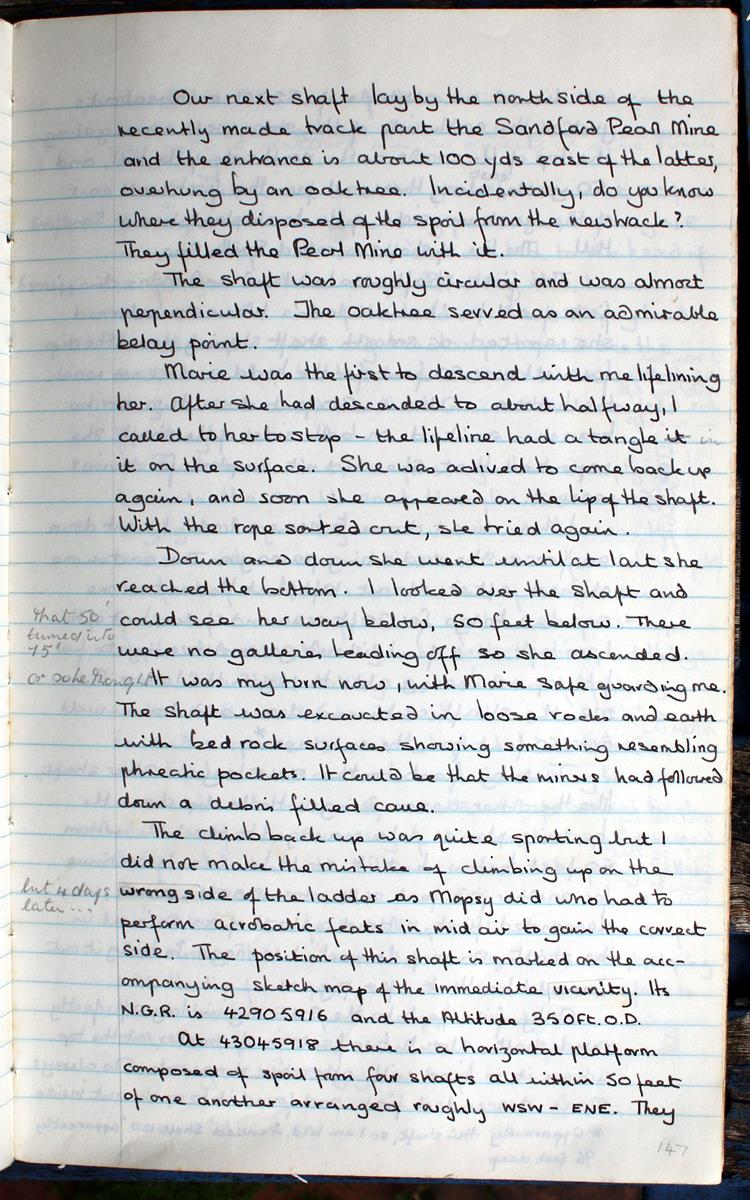 Our next shaft lay by the north side of the
recently made track past the Sandford Pearl Mine
and the entrance is about 100 yds east of the latter,
overhung by an oak tree. Incidentally, do you know
where they disposed of the spoil from the new track?
They filled the Pearl Mine with it.
The shaft was roughly circular and was almost
perpendicular. The oaktree served as an admirable
belay point.
Marie was the first to descend with me lifelining
her. After she had descended to about halfway, I
called to her to stop - the lifeline had a tangle it in
it on the surface. She was adived to come back up
again, and soon she appeared on the lip of the shaft.
With the rope sorted out, she tried again.
Down and down she went until at last she
reached the bottom. I looked over the shaft and
could see her way below, 50 feet below. There
that 50'
turned into
75'
were no galleries leading off so she ascended.
or so he thought
It was my turn now, with Marie safe guarding me.
The shaft was excavated in loose rocks and earth
with bed rock surfaces showing something resembling
phreatic pockets. It could be that the miners had followed
down a debris filled cave.
The climb back up was quite sporting but I
did not make the mistake of climbing up on the
but 4 days
later...
wrong side of the ladder as Mopsy did who had to
perform acrobatic feats in mid air to gain the correct
side. The position of this shaft is marked on the acc-
ompanying sketch map of the immediate vicinity. Its
N.G.R. is 42905916 and the Altitude 350ft. O.D.
At 43045918 there is a horizontal platform
composed of spoil from four shafts all within 50 feet
of one another arranged roughly WSW - ENE. They
147